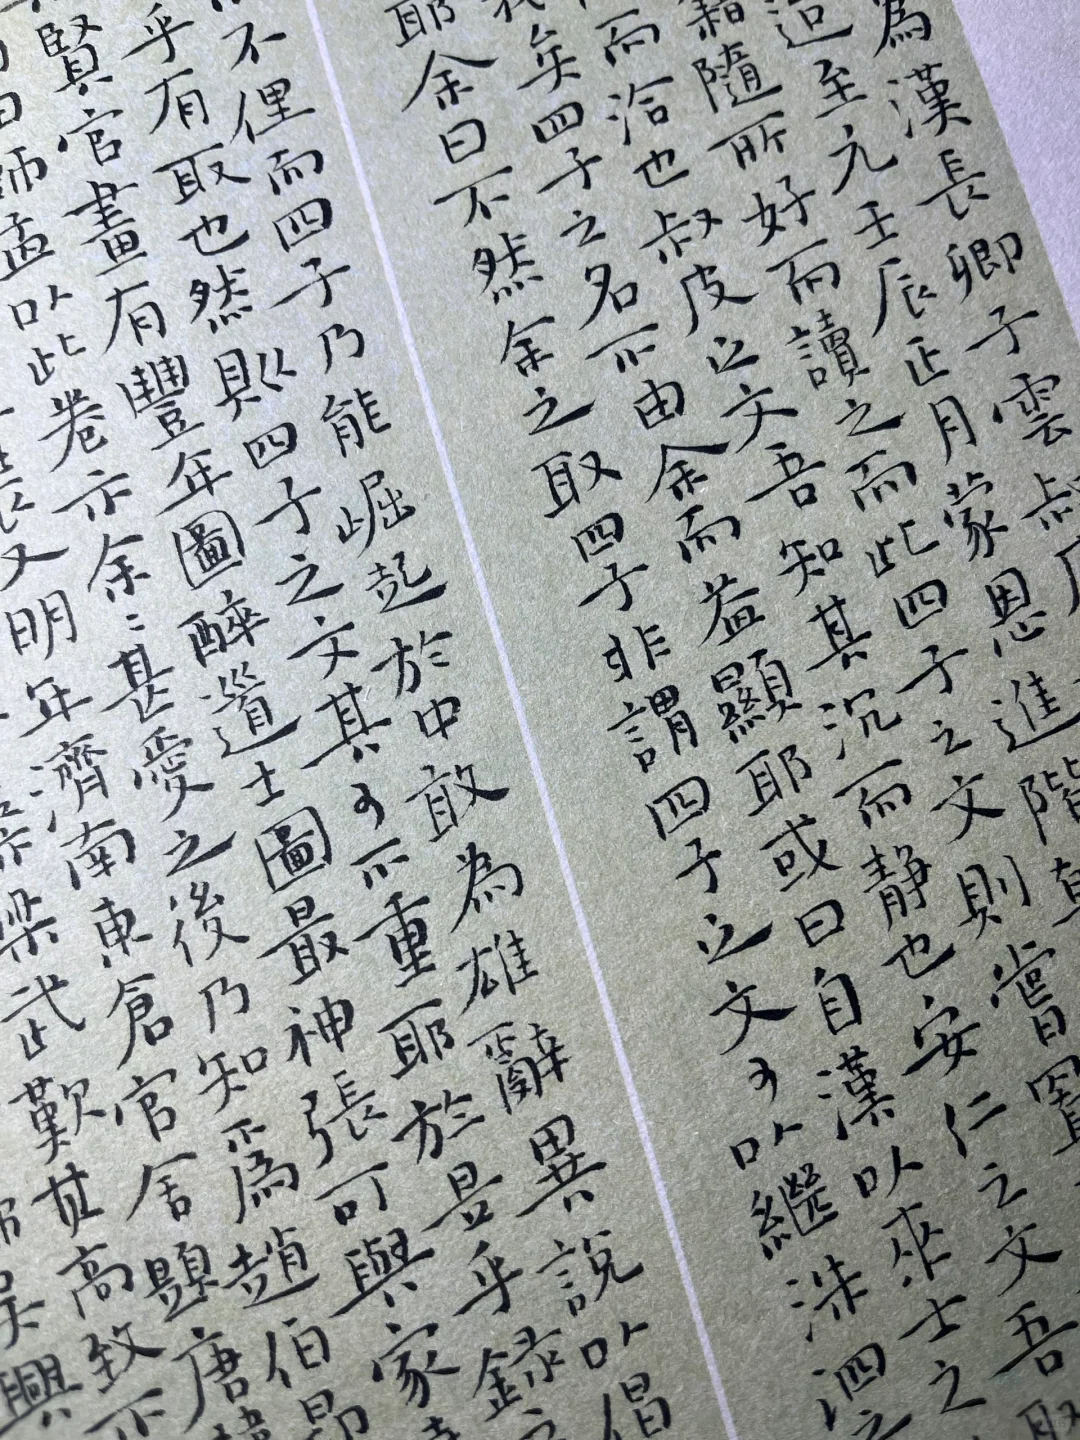 為漢長卿子雲叔
造至元壬辰正月蒙恩進階
隨所好而讀之而此四子之文則嘗
而洽也叔皮之文吾知其沉而靜也安仁之文吾取
矣四子之名不由余而益顯耶或曰自漢以來士之
耶余曰不然余之取四子非謂四子之文可以繼洙泗之
不俚而四子乃能崛起於中敢為雄辭異說以倡
乎有取也然則四子之文其可不重耶於是乎錄
賢官畫有豐年圖醉道士圖最神張可與家
師孟以此卷示余〻甚愛之後乃知爲趙伯昂
又明年濟南東倉官舍題唐
梁武歎其高致不
吳興